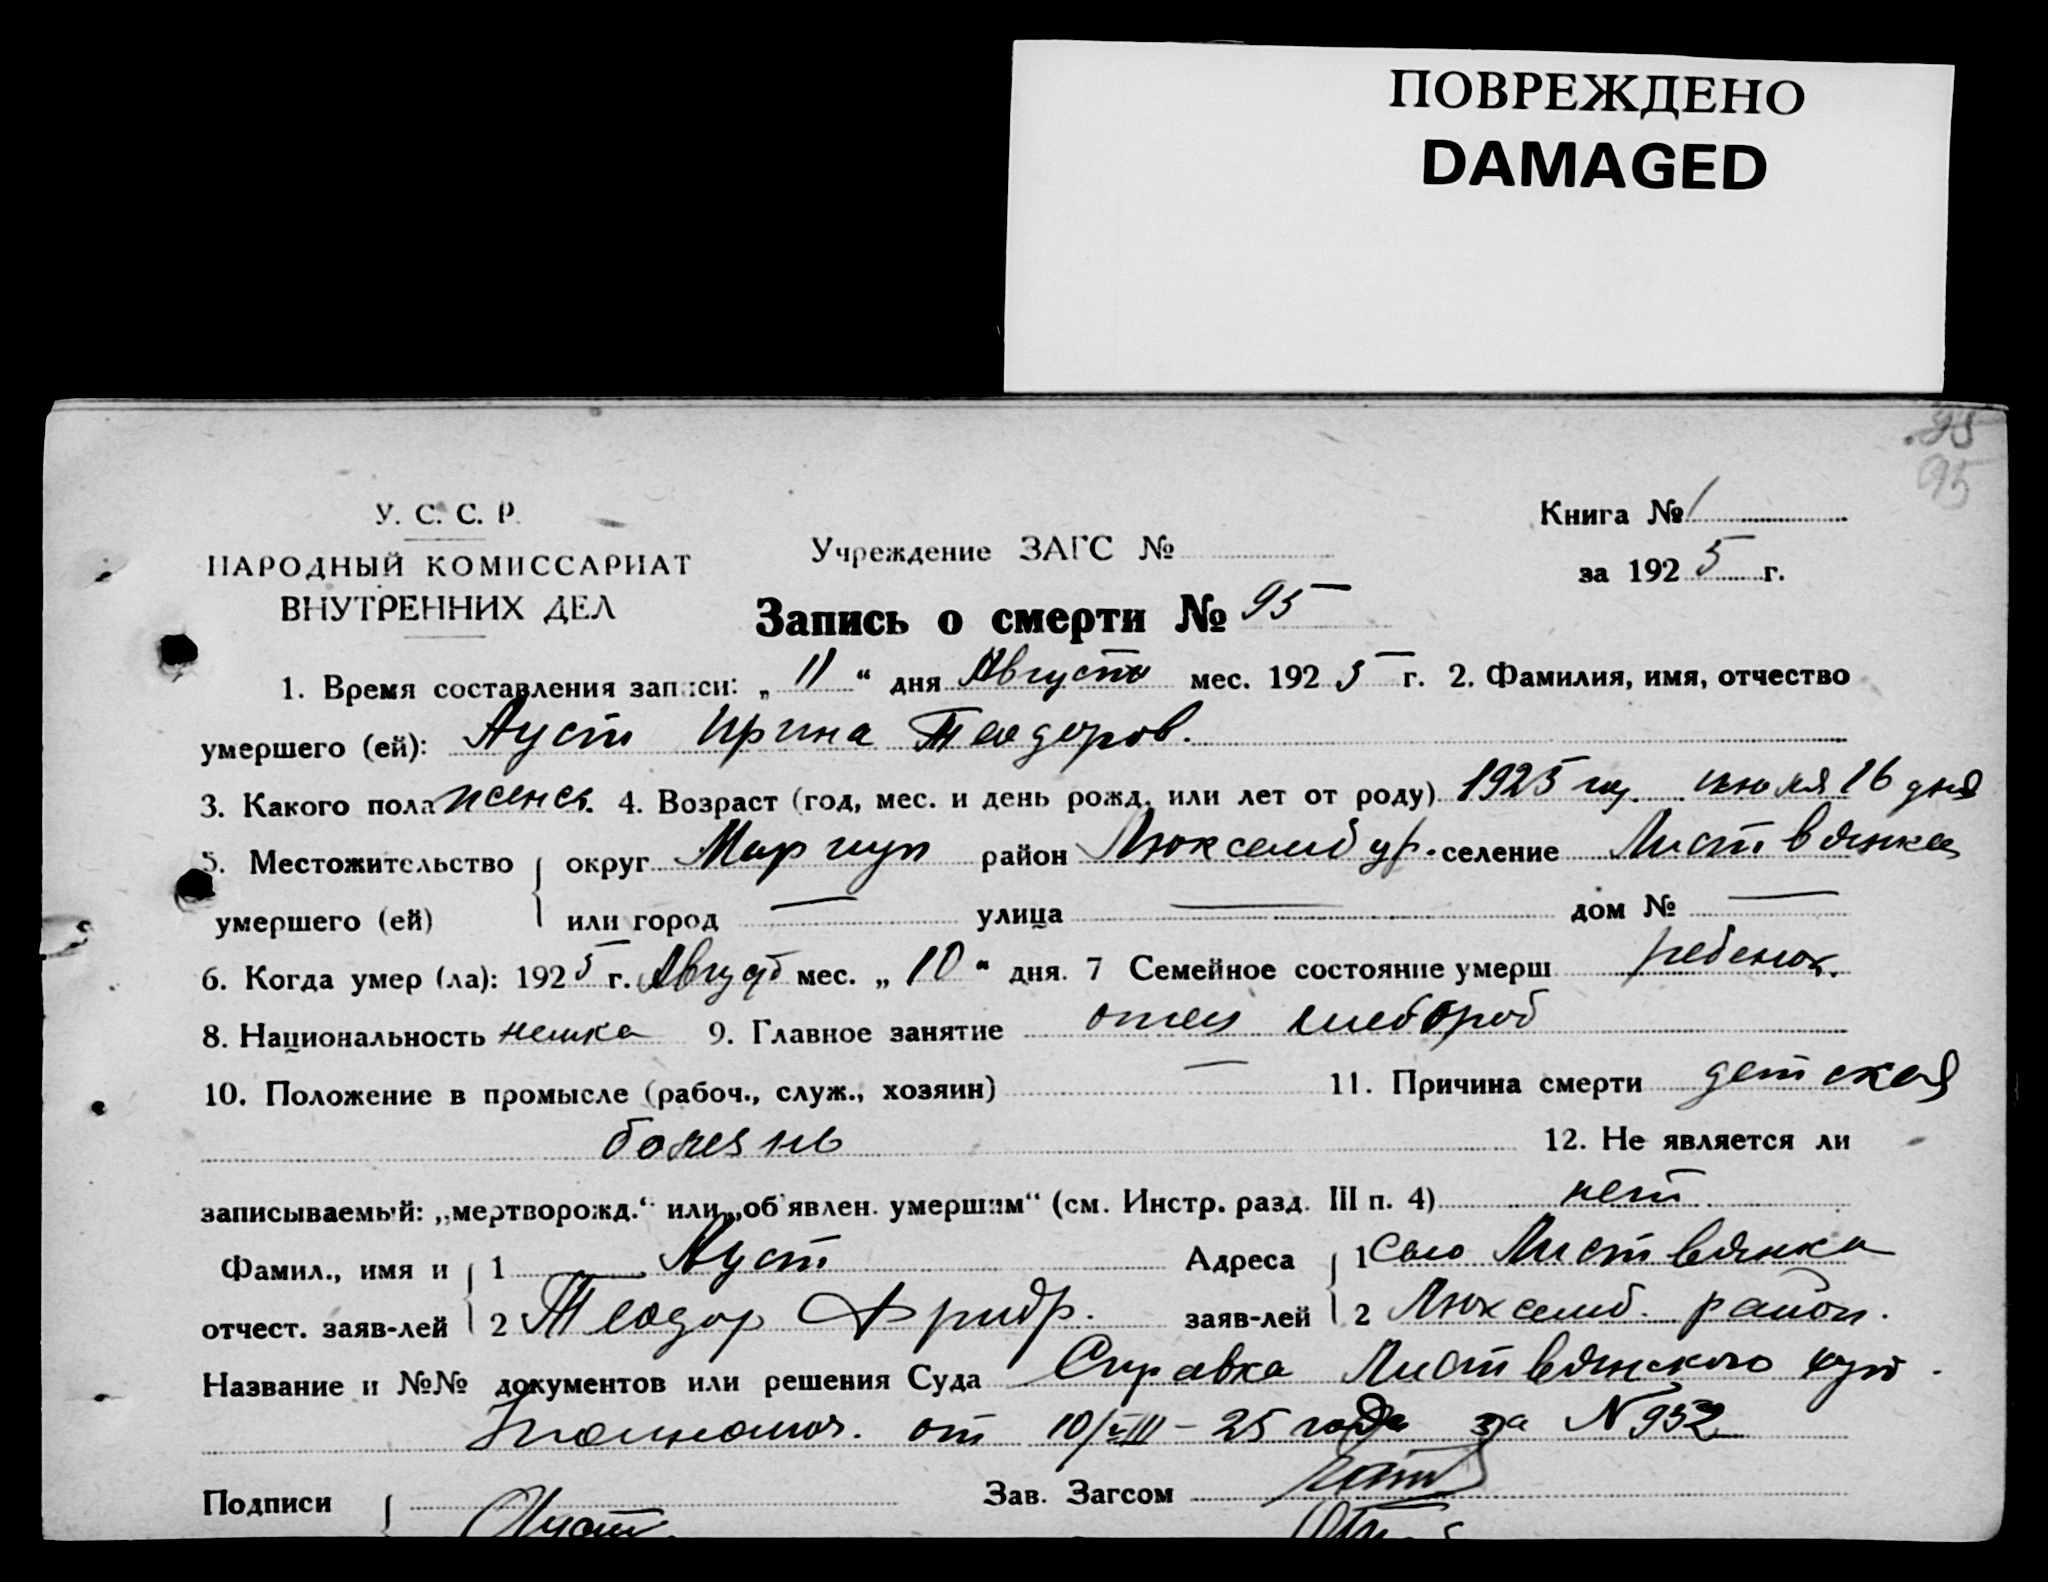 ПОВРЕЖДЕНО
DAMAGED
95
У. С. С. Р.
НАРОДНЫЙ КОМИССАРИАТ
ВНУТРЕННИХ ДЕЛ
Учреждение ЗАГС №
Книга № 1
за 1925 г.
Запись о смерти № 95
1. Время составления записи: „ 11 “ дня Августа мес. 1925 г. 2. Фамилия, имя, отчество
умершего (ей): Ауст Ирина Теодоров.
3. Какого пола женск. 4. Возраст (год, мес. и день рожд. или лет от роду) 1925 г. июля 16 дня
5. Местожительство округ Мариуп район Люксембур. селение Листвянка
умершего (ей) или город — улица — дом № —
6. Когда умер (ла): 1925 г. Август мес. „ 10 “ дня. 7 Семейное состояние умерш ребенок.
8. Национальность немка 9. Главное занятие отец хлебороб
10. Положение в промысле (рабоч., служ., хозяин) — 11. Причина смерти детская
болезнь 12. Не является ли
записываемый: „мертворожд.“ или „об'явлен. умершим“ (см. Инстр. разд. III п. 4) нет
Фамил., имя и 1 Ауст Адреса 1 Село Листвянка
отчест. заяв-лей 2 Теодор Фридр. заяв-лей 2 Люксемб. район.
Название и №№ документов или решения Суда Справка Листвянского
от 10/VIII-25 года за N 932
Подписи Зав. Загсом
Ауст